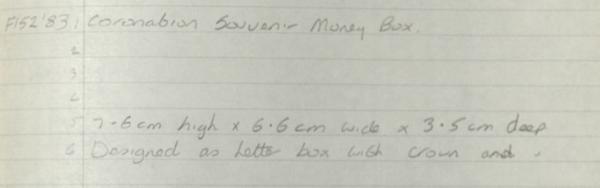 F152'83 1 Coronation Souvenir Money Box.
2
3
4
5 7.6cm high x 6.6cm wide x 3.5cm deep
6 Designed as letter box with crown and